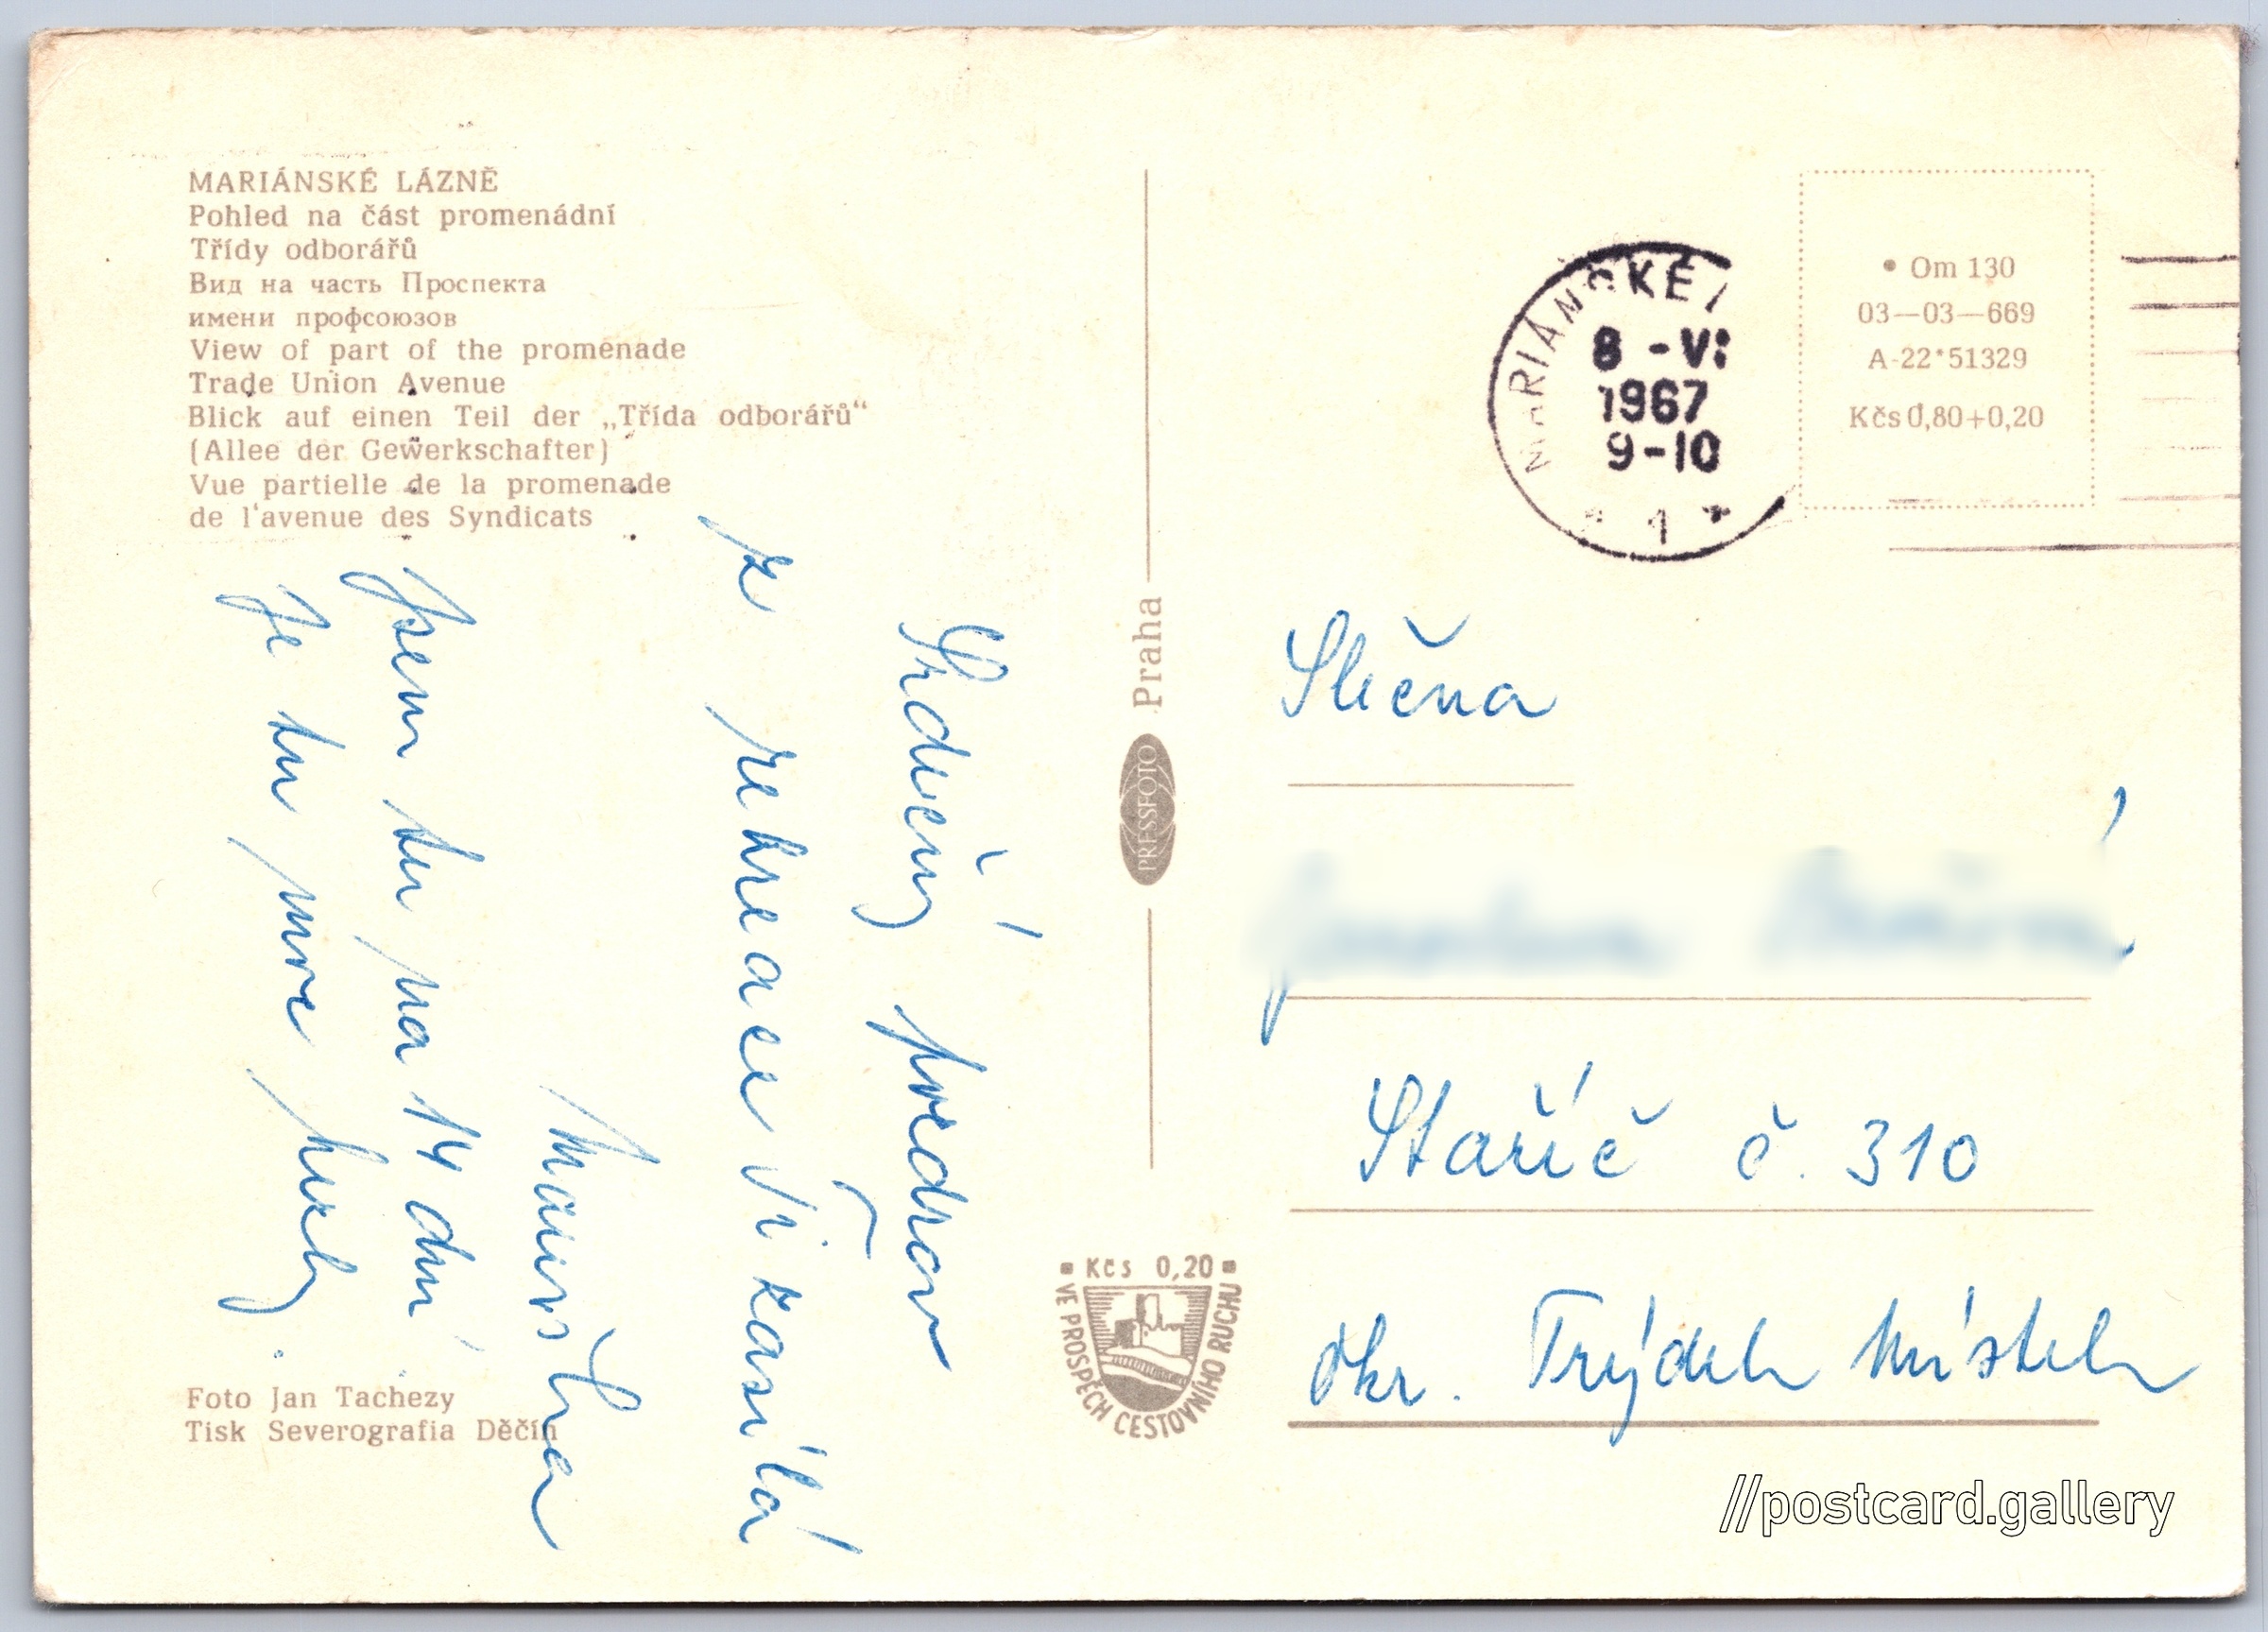 MARIÁNSKÉ LÁZNĚ
Pohled na část promenádní
Třídy odborářů
Вид на часть Проспекта
имени профсоюзов
View of part of the promenade
Trade Union Avenue
Blick auf einen Teil der „Třída odborářů“
(Allee der Gewerkschafter)
Vue partielle de la promenade
de l'avenue des Syndicats
Srdečný pozdrav
z rekreace Ti zasílá
Maruška
Jsem tu na 14 dní.
Je tu moc hezky.
Foto Jan Tachezy
Tisk Severografia Děčín
Praha
PRESSFOTO
Kčs 0,20
VE PROSPĚCH CESTOVNÍHO RUCHU
MARIÁNSKÉ
8 -VI
1967
9-10
1
Om 130
03—03—669
A-22*51329
Kčs 0,80+0,20
Slečna
Staříč č. 310
Okr. Frýdek Místek
//postcard.gallery